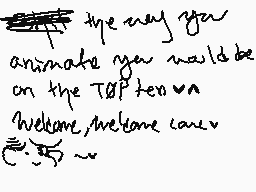 the way you
animate you would be
on the TØP ten ♥^
Welcome, Welcome care♥